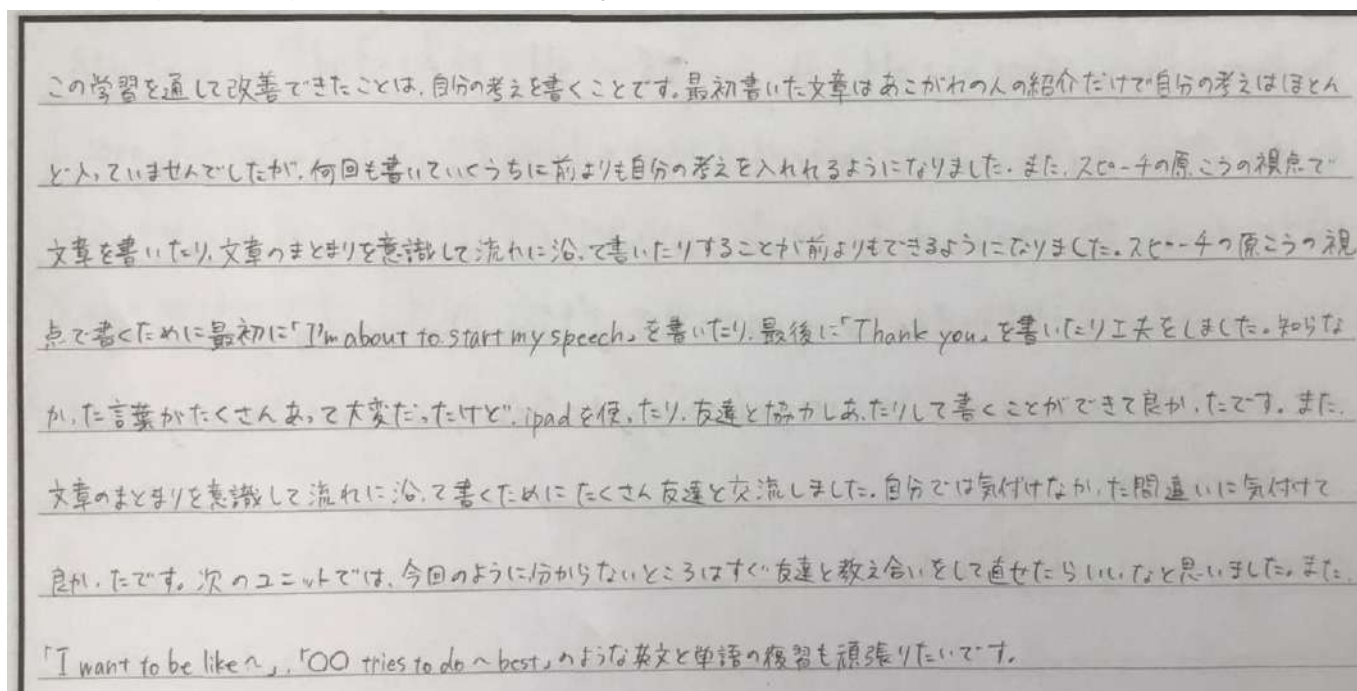 この学習を通して改善できたことは、自分の考えを書くことです。最初書いた文章はあこがれの人の紹介だけで自分の考えはほとん
ど入っていませんでしたが、何回も書いていくうちに前よりも自分の考えを入れれるようになりました。また、スピーチの原こうの視点で
文章を書いたり、文章のまとまりを意識して流れに沿って書いたりすることが前よりもできるようになりました。スピーチの原こうの視
点で書くために最初に「I'm about to start my speech」を書いたり、最後に「Thank you」を書いたり工夫をしました。知らな
かった言葉がたくさんあって大変だったけど、ipadを使ったり、友達と協力しあったりして書くことができて良かったです。また、
文章のまとまりを意識して流れに沿って書くためにたくさん友達と交流しました。自分では気付けなかった間違いに気付けて
良かったです。次のユニットでは、今回のように分からないところはすぐ友達と教え合いをして直せたらいいなと思いました。また、
「I want to be like~」、「〇〇 tries to do ~ best」のような英文と単語の復習も頑張りたいです。